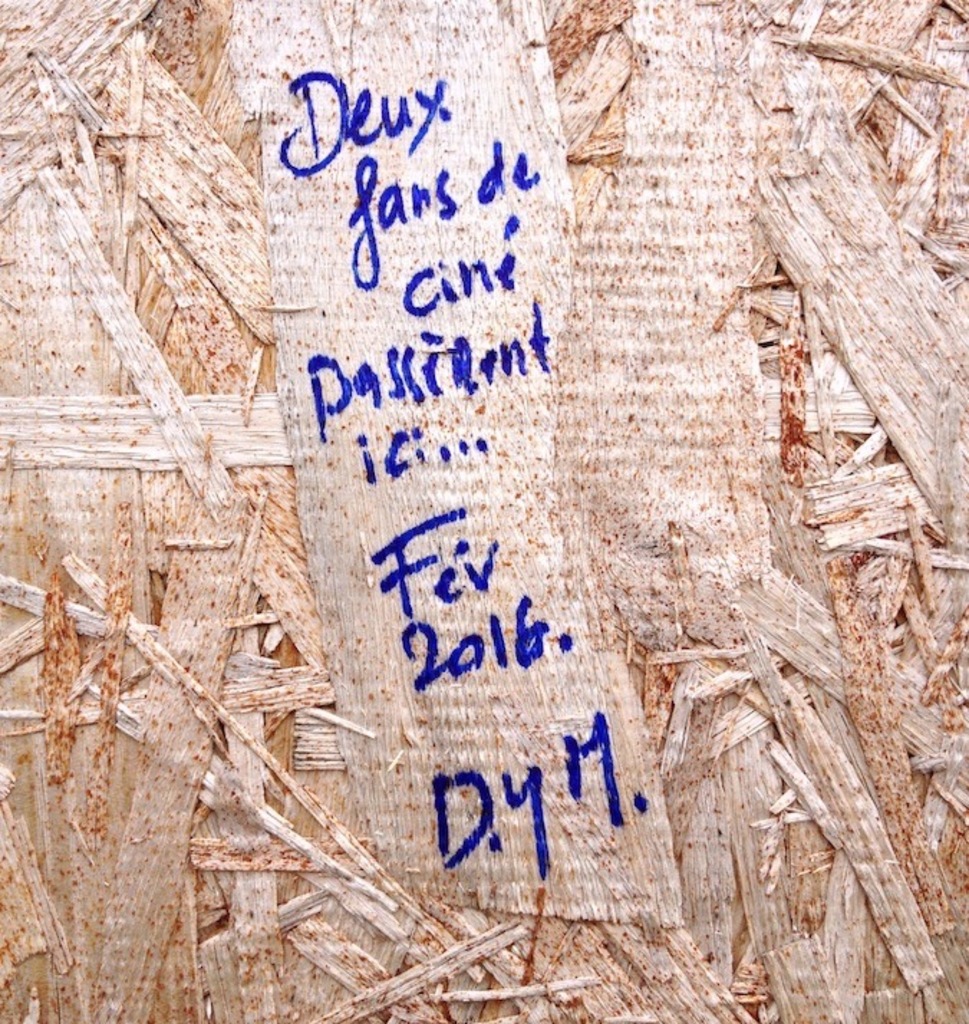 Deux
fans de
ciné
passèrent
ici...
Fév
2016.
D.y M.